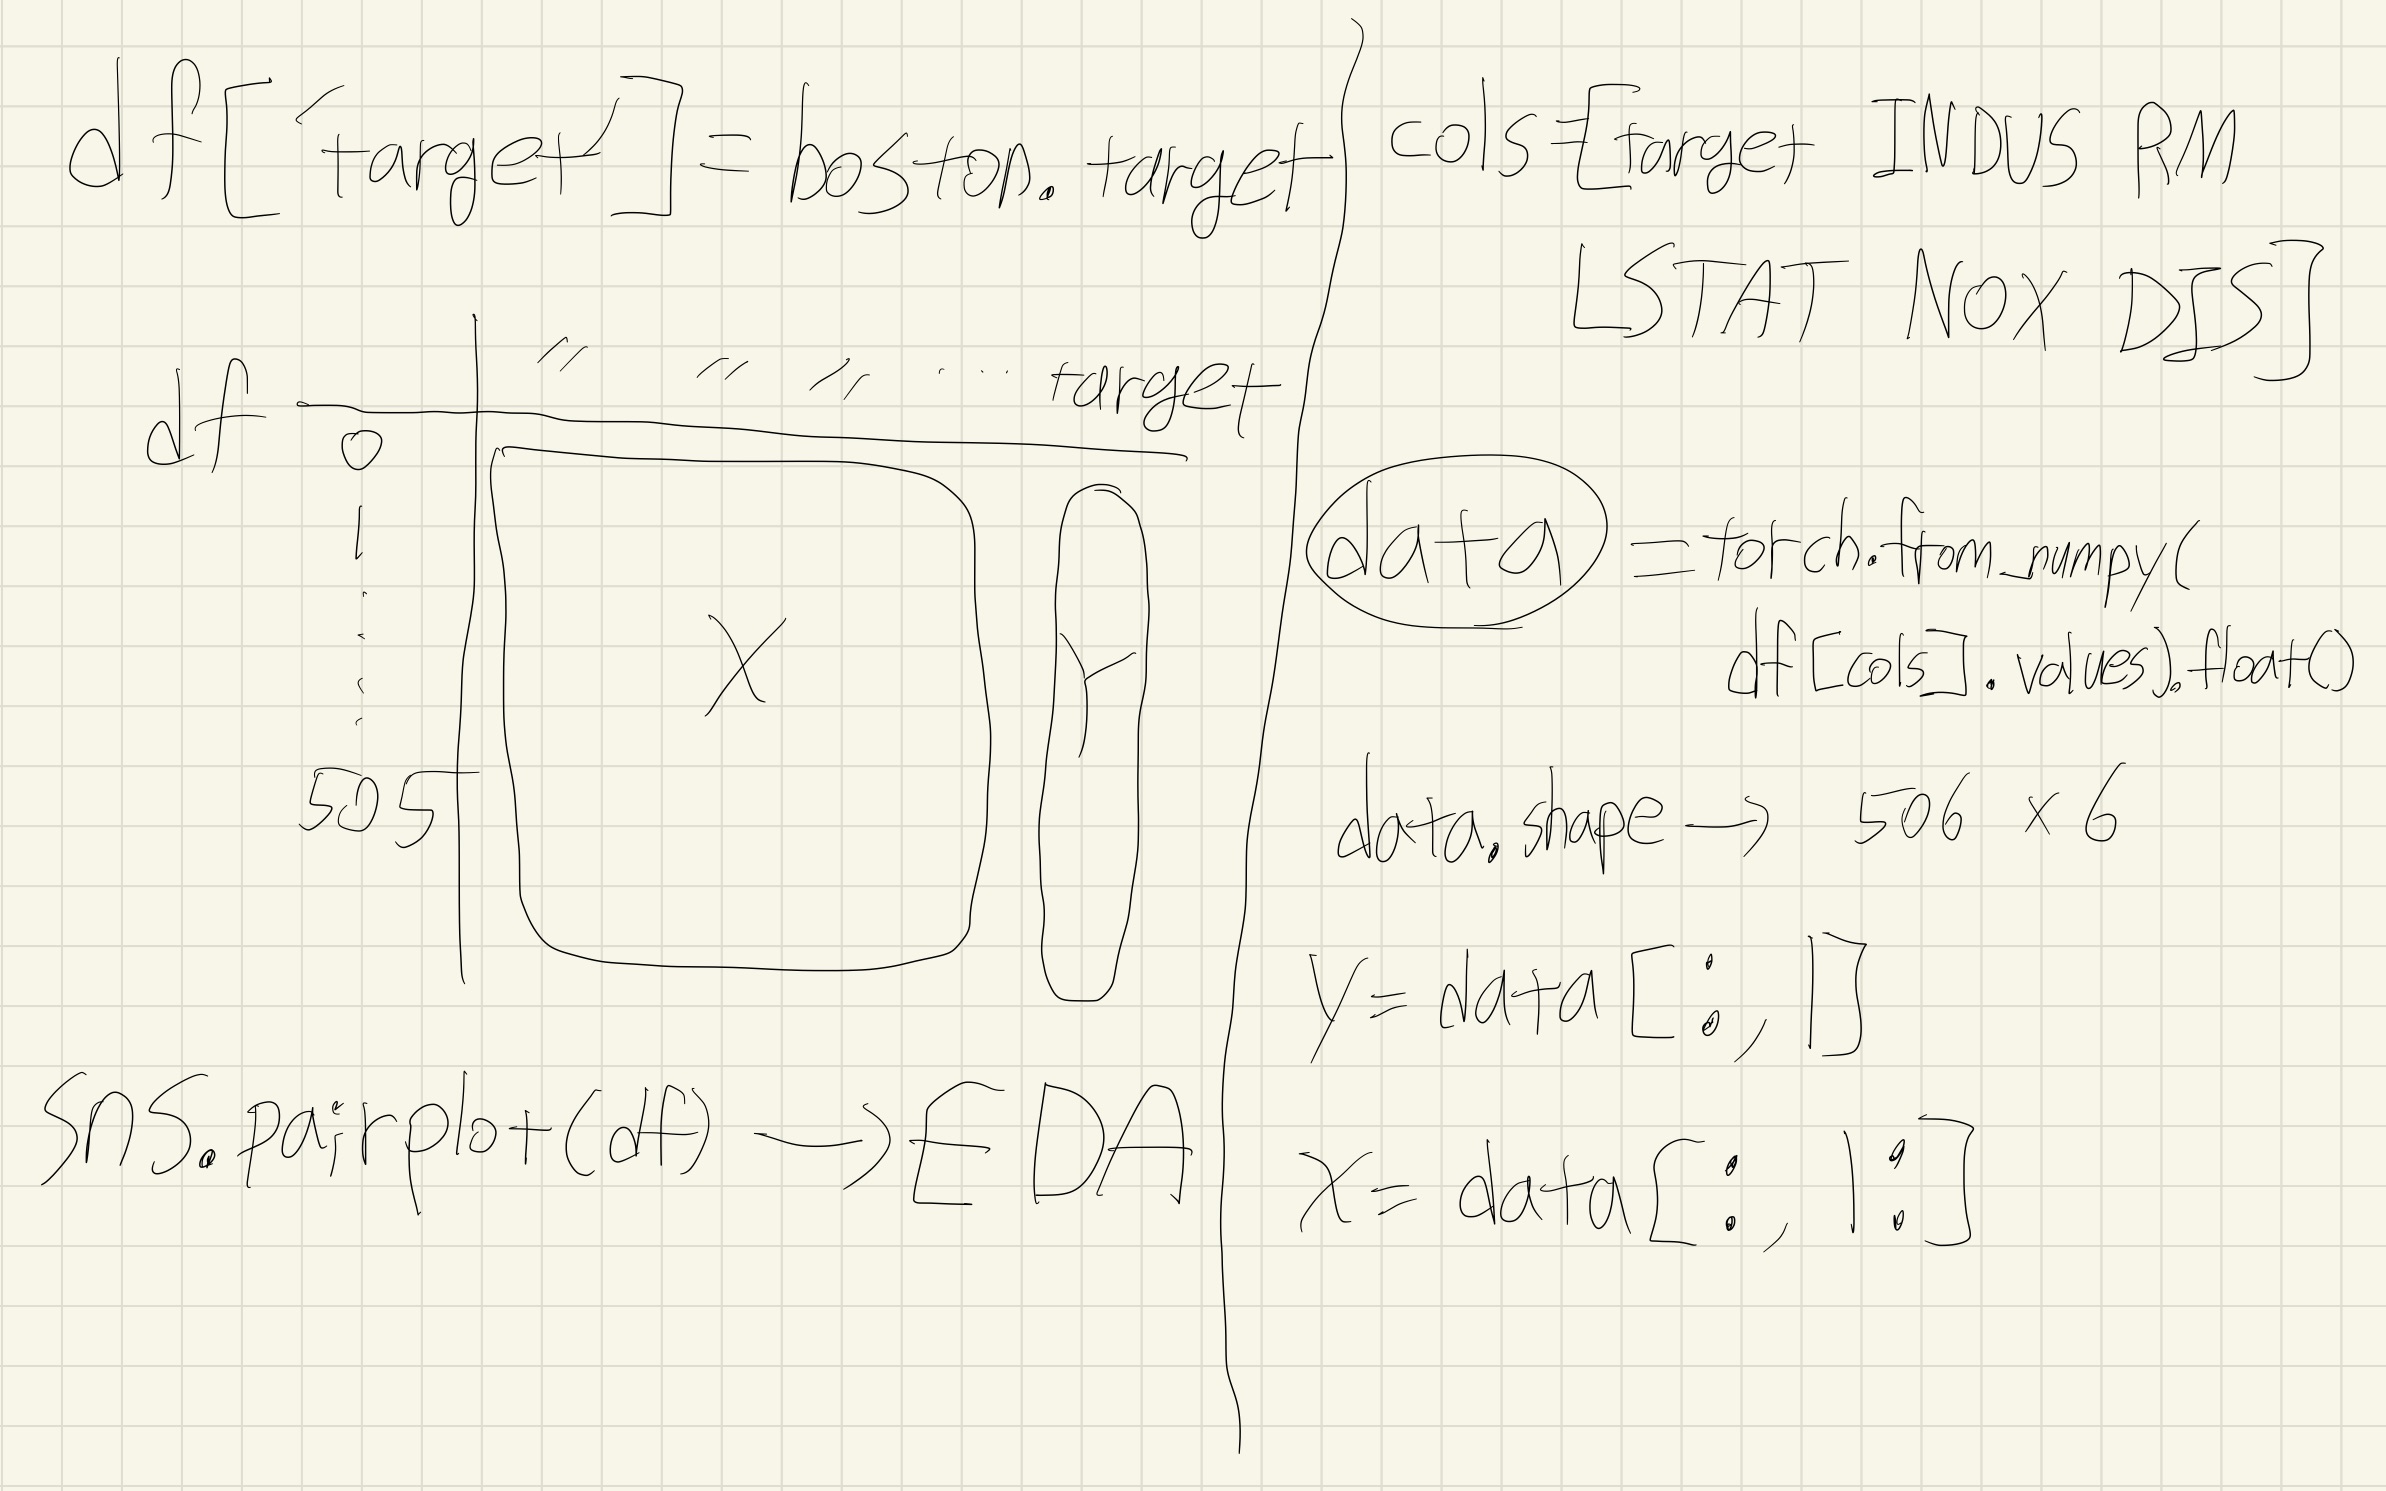 df['target'] = boston.target
df " " " ... target
0
1
505
X
Y
sns.pairplot(df) → EDA
cols=[target INDUS RM
LSTAT NOX DIS]
data = torch.from_numpy(
df[cols].values).float()
data.shape → 506 x 6
y = data[:, 1]
x = data[:, 1:]